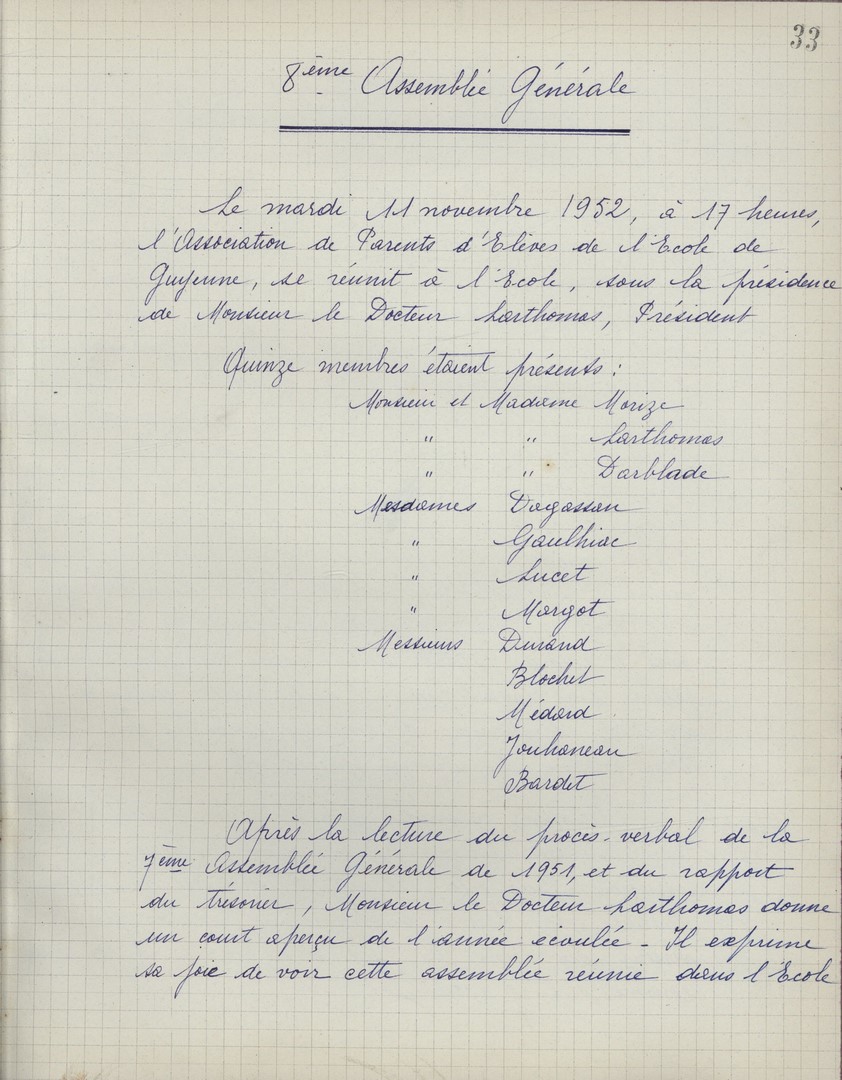 33
8ème Assemblée Générale
Le mardi 11 novembre 1952, à 17 heures,
l'Association de Parents d'Elèves de l'Ecole de
Guyenne, se réunit à l'Ecole, sous la présidence
de Monsieur le Docteur Larthomas, Président
Quinze membres étaient présents :
Monsieur et Madame Morize
" " Larthomas
" " Darblade
Mesdames Dagassan
" Gaulhiac
" Lucet
" Margot
Messieurs Durand
Blochet
Médard
Jouhaneau
Bardet
Après la lecture du procès-verbal de la
7ème Assemblée Générale de 1951, et du rapport
du trésorier, Monsieur le Docteur Larthomas donne
un court aperçu de l'année écoulée - Il exprime
sa joie de voir cette assemblée réunie dans l'Ecole